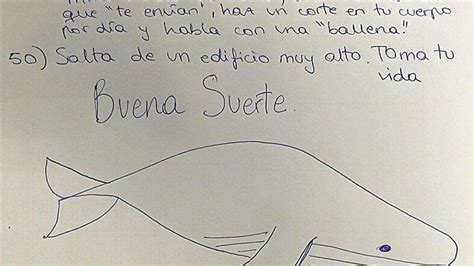 que "te envían", haz un corte en tu cuerpo
por día y habla con una "ballena"
50) Salta de un edificio muy alto. Toma tu
vida
Buena Suerte.